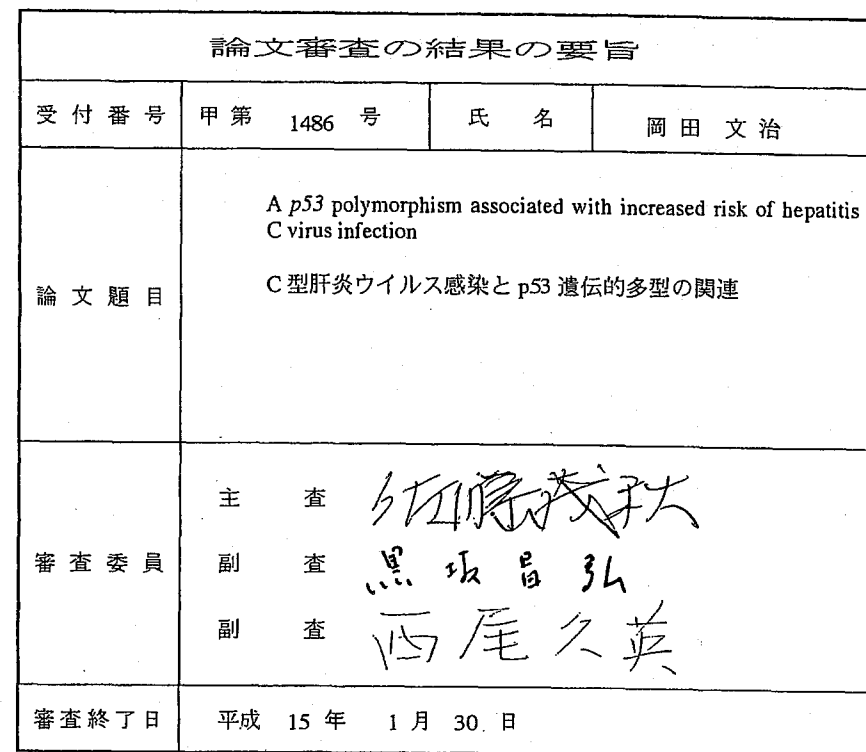 論文審査の結果の要旨
受付番号 甲第 1486 号 氏 名 岡田 文治
論文題目
A p53 polymorphism associated with increased risk of hepatitis
C virus infection
C型肝炎ウイルス感染とp53遺伝的多型の関連
審査委員
主 査 佐藤茂秋
副 査 黒坂昌弘
副 査 西尾久英
審査終了日 平成 15 年 1 月 30 日